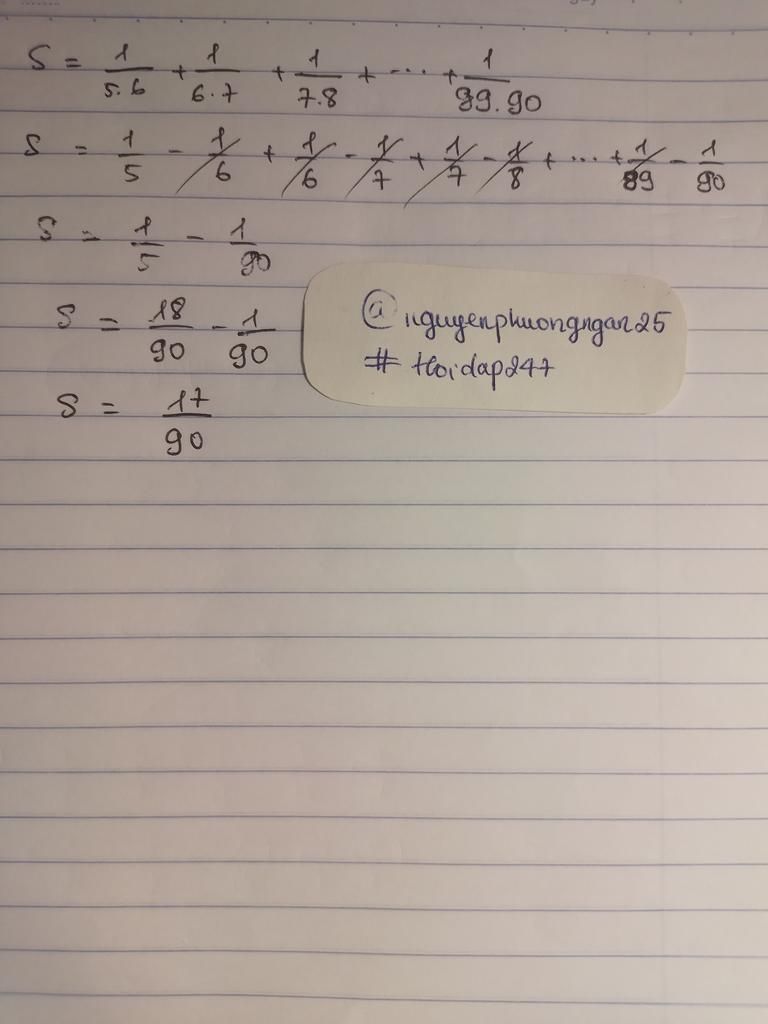 S = 1/5.6 + 1/6.7 + 1/7.8 + ... + 1/89.90
S = 1/5 - 1/6 + 1/6 - 1/7 + 1/7 - 1/8 + ... + 1/89 - 1/90
S = 1/5 - 1/90
S = 18/90 - 1/90
S = 17/90
@nguyenphuongngan25
# Hoidap247